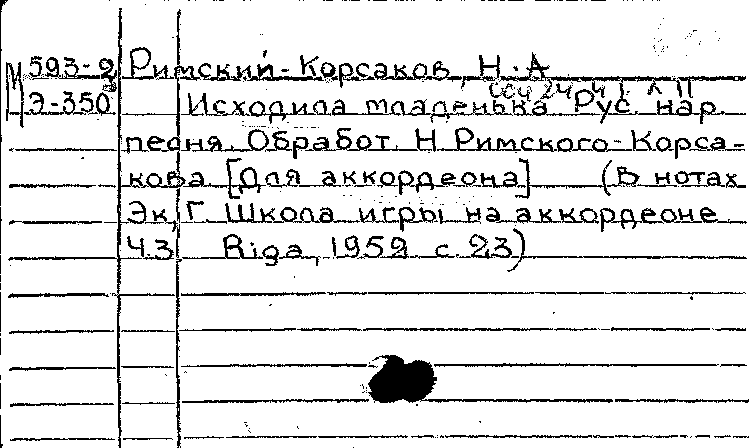 М 593-2 Римский-Корсаков, Н.А
Э-350 Исходила младенька Рус. нар.
песня. Обработ. Н. Римского-Корса-
кова [Для аккордеона] (В нотах
Эк, Г. Школа игры на аккордеоне
Ч.3 Riga, 1952 с. 23)